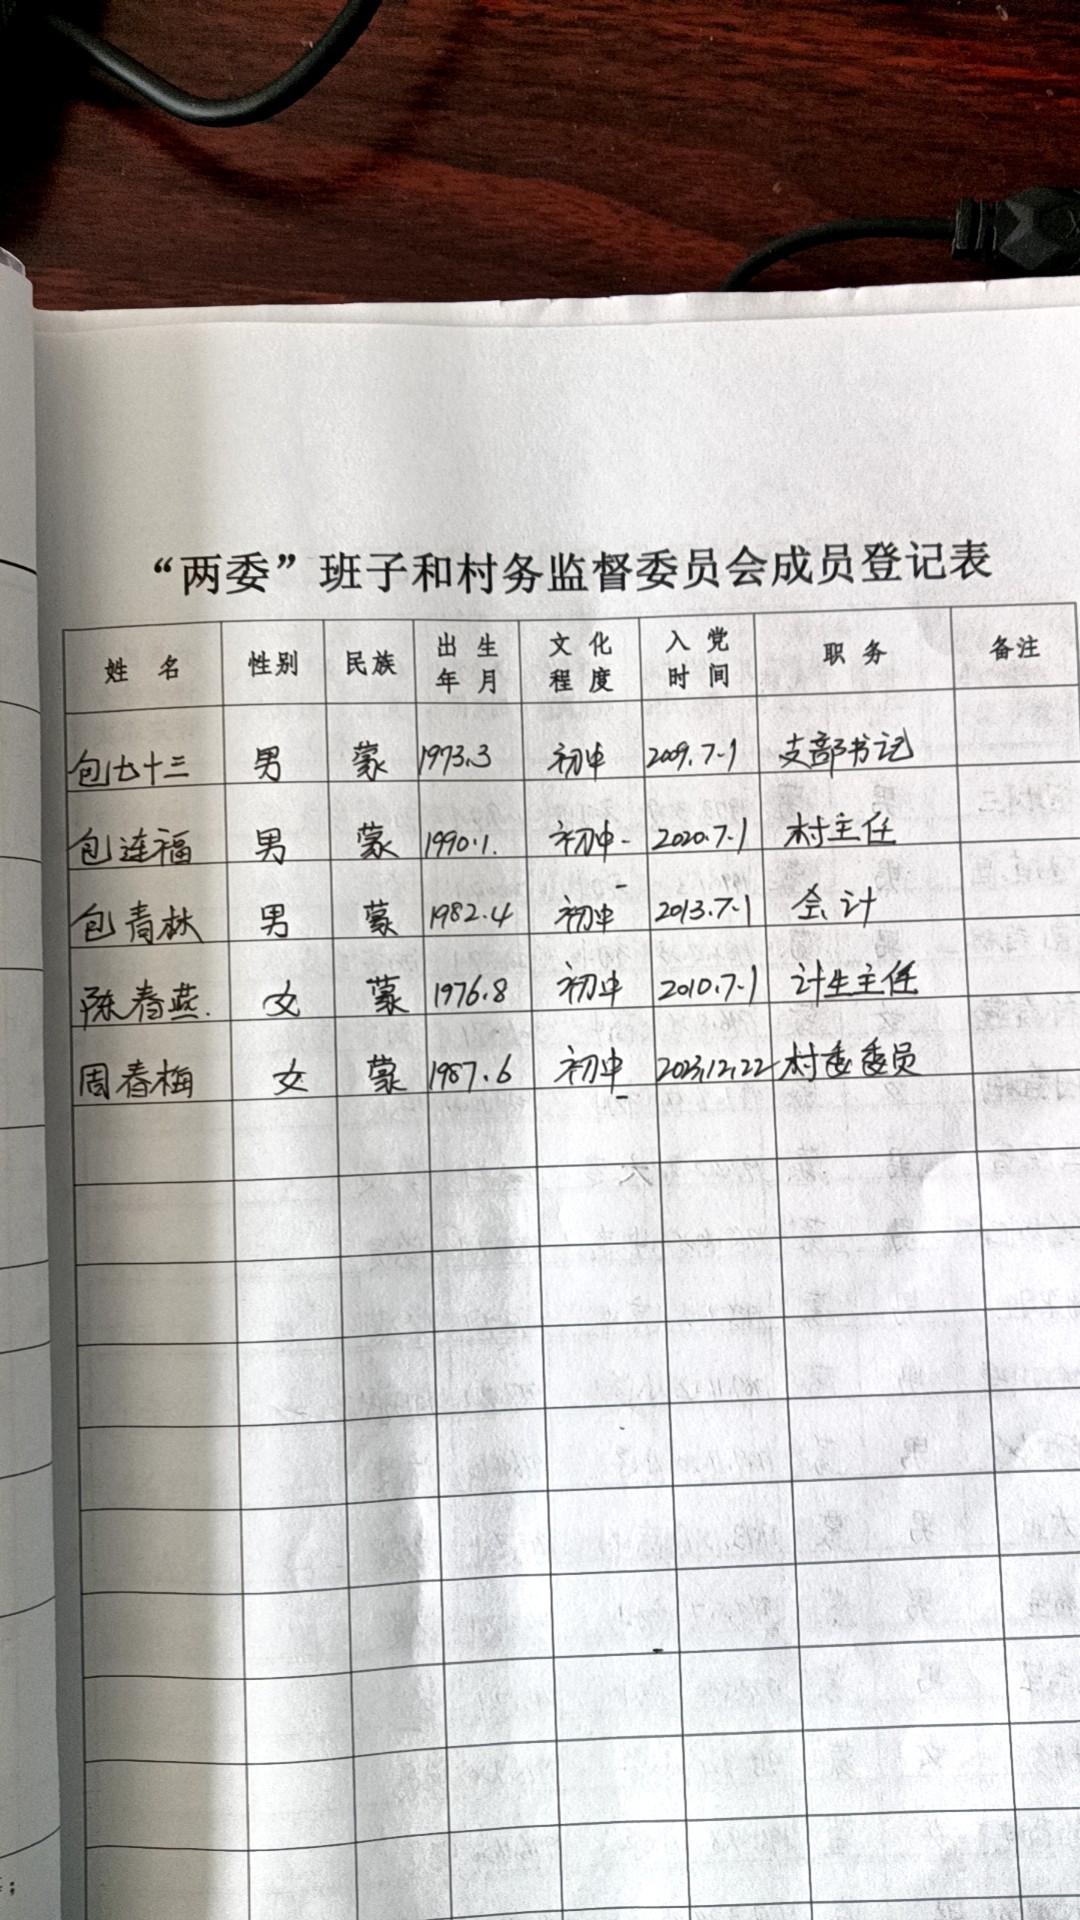 “两委”班子和村务监督委员会成员登记表
姓 名 性别 民族 出 生 年 月 文 化 程 度 入 党 时 间 职 务 备注
包七十三 男 蒙 1973.3 初中 2009.7.1 支部书记
包连福 男 蒙 1990.1. 初中 2020.7.1 村主任
包青林 男 蒙 1982.4 初中 2013.7.1 会计
陈春燕. 女 蒙 1976.8 初中 2010.7.1 计生主任
周春梅 女 蒙 1987.6 初中 2023.12.22 村委委员